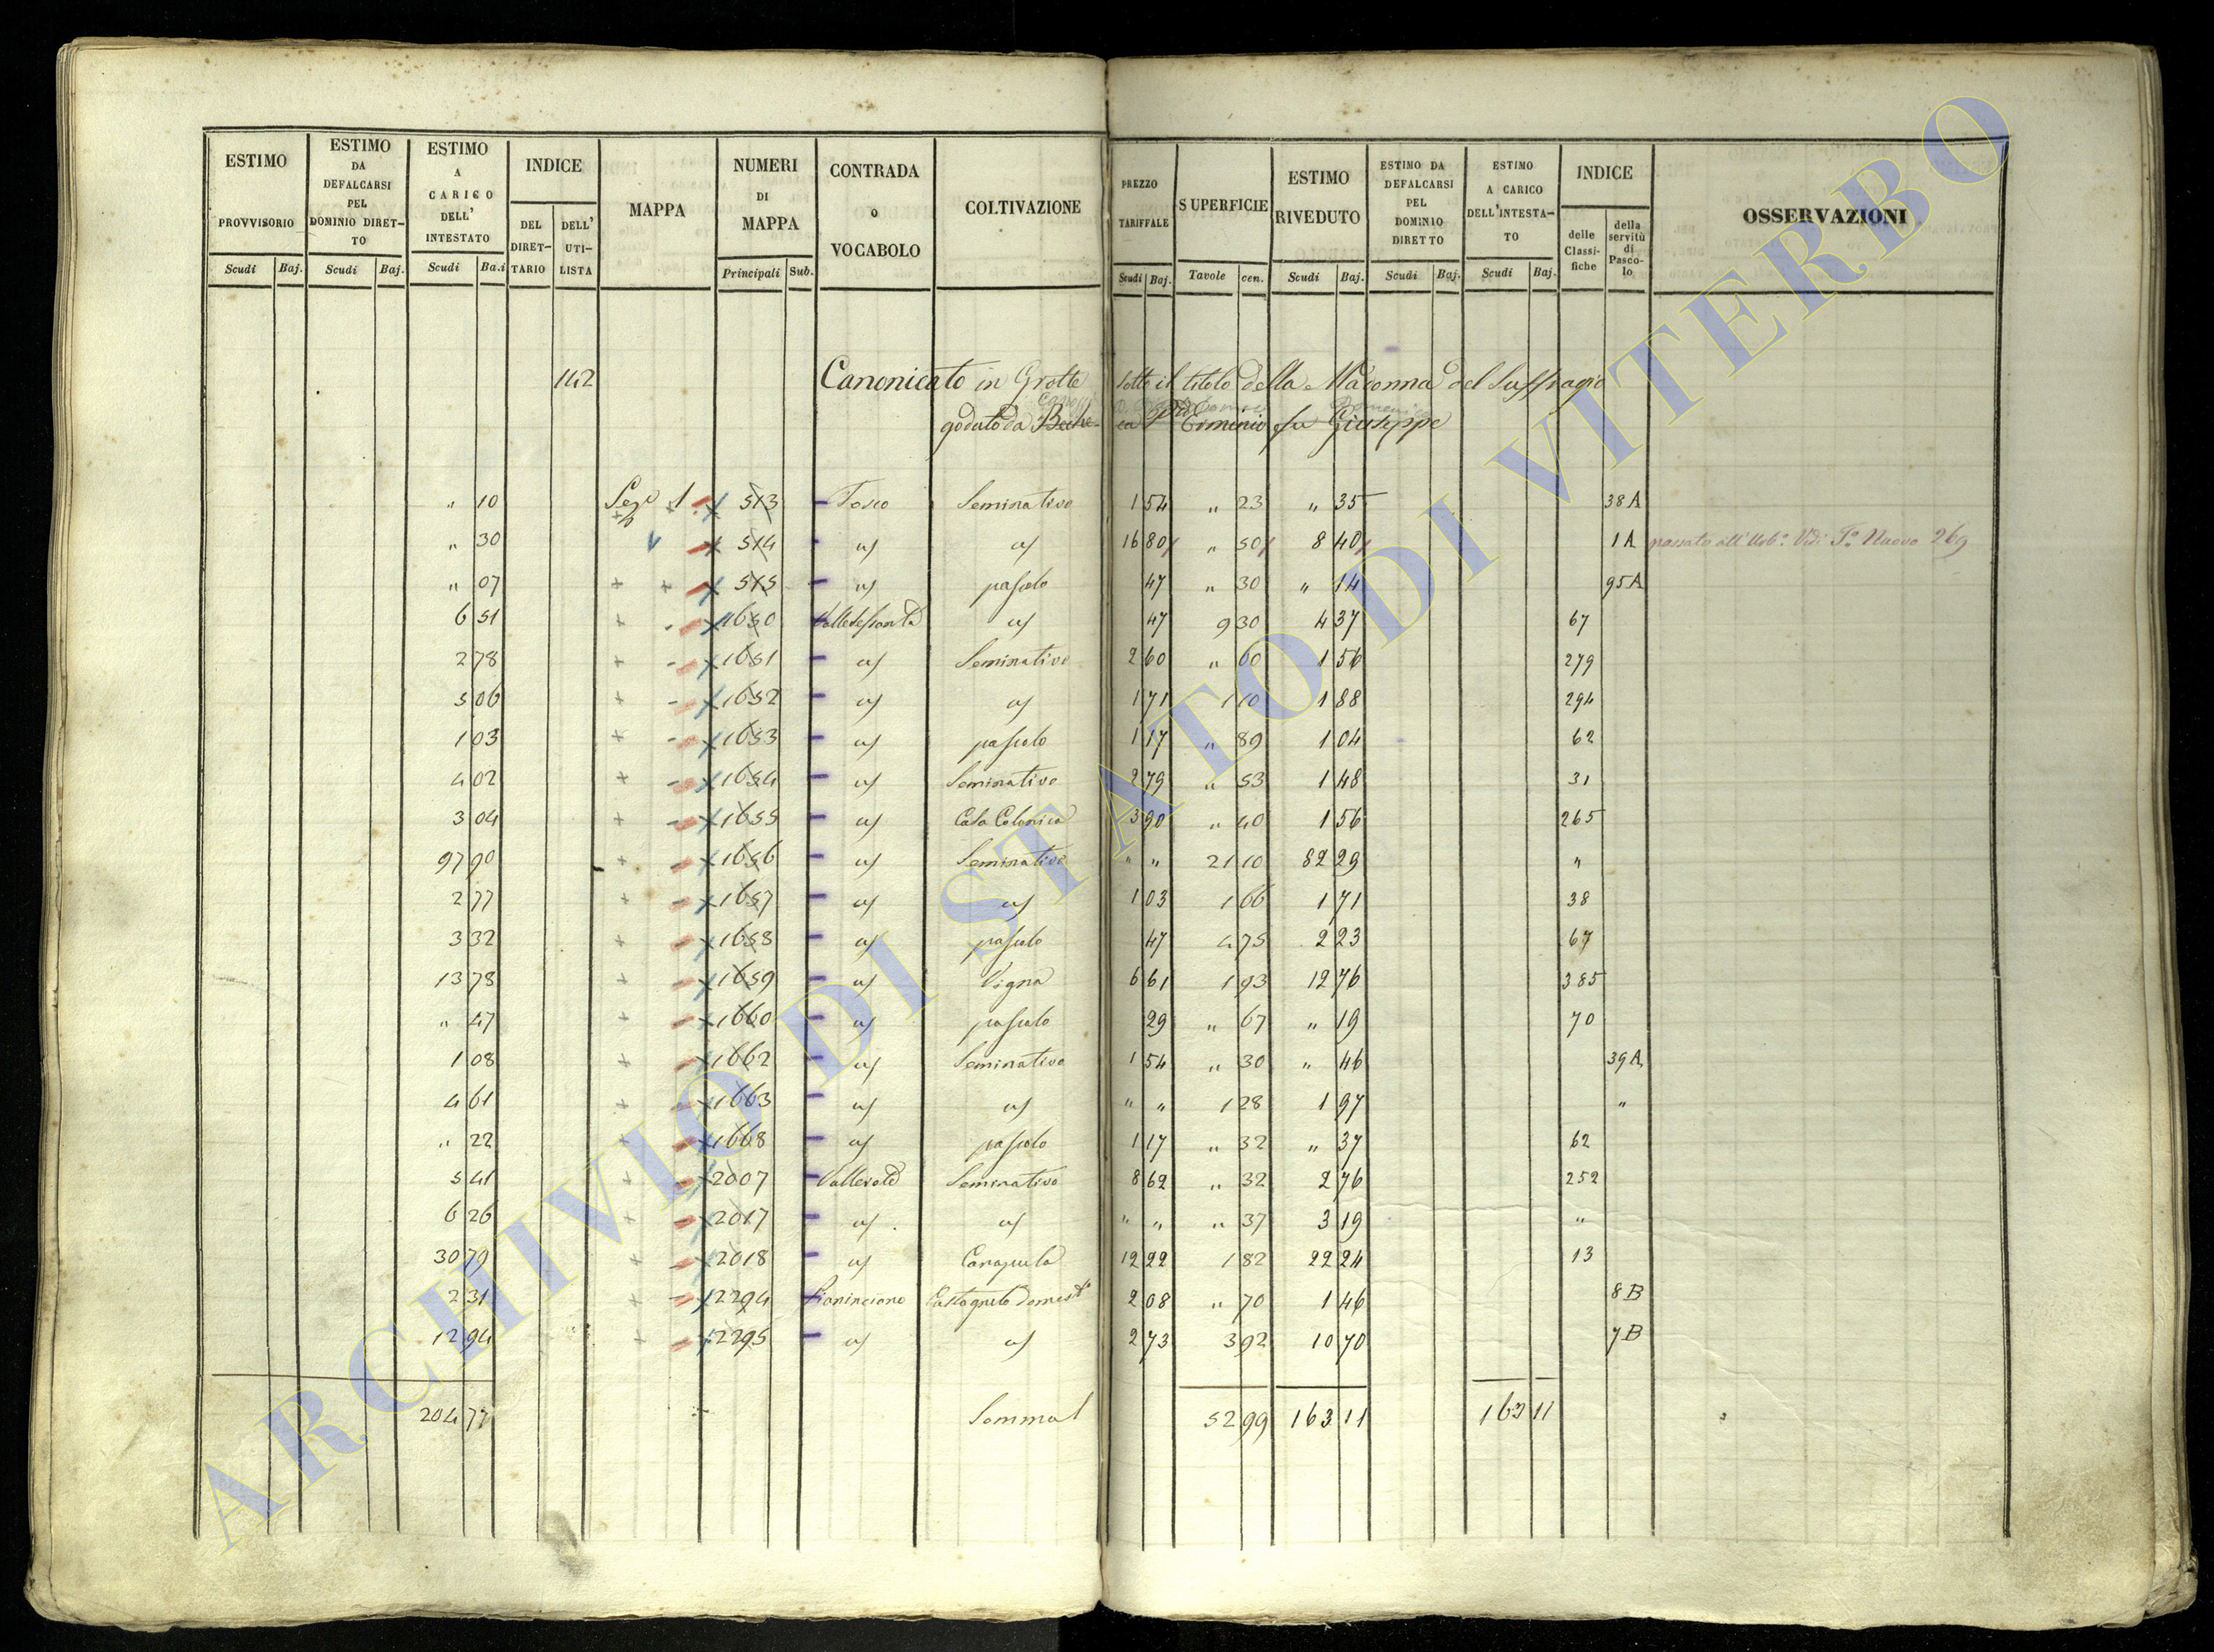 ESTIMO PROVVISORIO
ESTIMO DA DEFALCARSI PEL DOMINIO DIRETTO
ESTIMO A CARICO DELL' INTESTATO
INDICE
DEL DIRETTARIO
DELL' UTILISTA
MAPPA
NUMERI DI MAPPA
CONTRADA o VOCABOLO
COLTIVAZIONE
PREZZO TARIFFALE
SUPERFICIE
ESTIMO RIVEDUTO
ESTIMO DA DEFALCARSI PEL DOMINIO DIRETTO
ESTIMO A CARICO DELL'INTESTATO
INDICE
delle Classifiche
della servitù di Pascolo
OSSERVAZIONI
Scudi Baj. Scudi Baj. Scudi Ba.i Principali Sub. Scudi Baj. Tavole cen. Scudi Baj. Scudi Baj. Scudi Baj.
142 Canonicato in Grotte sotto il titolo della Madonna del Suffragio
goduto da Erminio fu Giuseppe
" 10 Sez 1 513 Tosco Seminativo 1 54 " 23 " 35 38 A
" 30 514 a/ a/ 16 80 " 50 8 40 1 A passato all' Urb.º Vedi Fº Nuovo 269
" 07 515 a/ pascolo 47 " 30 " 14 95 A
6 51 1650 a/ 47 9 30 4 37 67
2 78 1651 a/ Seminativo 2 60 " 60 1 56 279
5 06 1652 a/ a/ 1 71 1 10 1 88 294
1 03 1653 a/ pascolo 1 17 " 89 1 04 62
4 02 1654 a/ Seminativo 2 79 " 53 1 48 31
3 04 1655 a/ Casa Colonica 3 90 " 40 1 56 265
97 90 1656 a/ Seminativo " " 21 10 82 29 "
2 77 1657 a/ a/ 1 03 1 66 1 71 38
3 32 1658 a/ pascolo 47 4 75 2 23 67
13 78 1659 a/ Vigna 6 61 1 93 12 76 385
" 47 1660 a/ pascolo 29 " 67 " 19 70
1 08 1662 a/ Seminativo 1 54 " 30 " 46 39 A
4 61 1663 a/ a/ " " 1 28 1 97 "
" 22 1668 a/ pascolo 1 17 " 32 " 37 62
5 41 2007 Seminativo 8 62 " 32 2 76 252
6 26 2017 a/ a/ " " " 37 3 19 "
30 79 2018 a/ 12 22 1 82 22 24 13
2 31 2294 Castagneto domest 2 08 " 70 1 46 8 B
12 94 2295 a/ a/ 2 73 3 92 10 70 7 B
204 77 Somma 52 99 163 11 163 11
ARCHIVIO DI STATO DI VITERBO